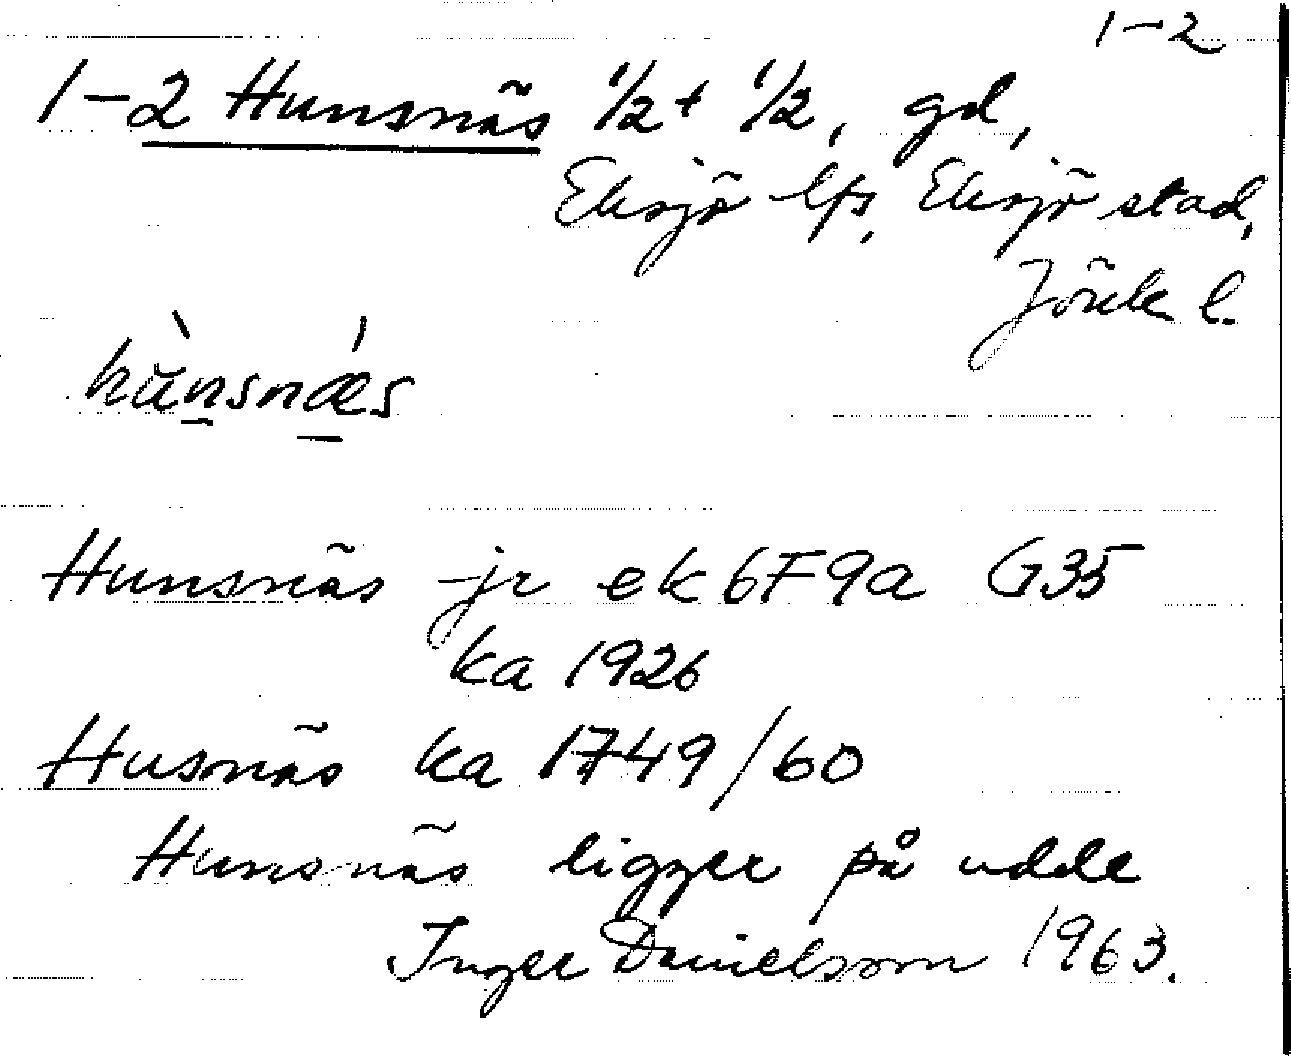 1-2
1-2 Hunsnäs 1/2 + 1/2, gd,
Eksjö lfs, Eksjö stad,
Jönk l.
hùnsnǽs
Hunsnäs jr ek 6F9a G35
ka 1926
Husnäs ka 1749/60
Hunsnäs ligger på udde
Inger Danielsson 1963.